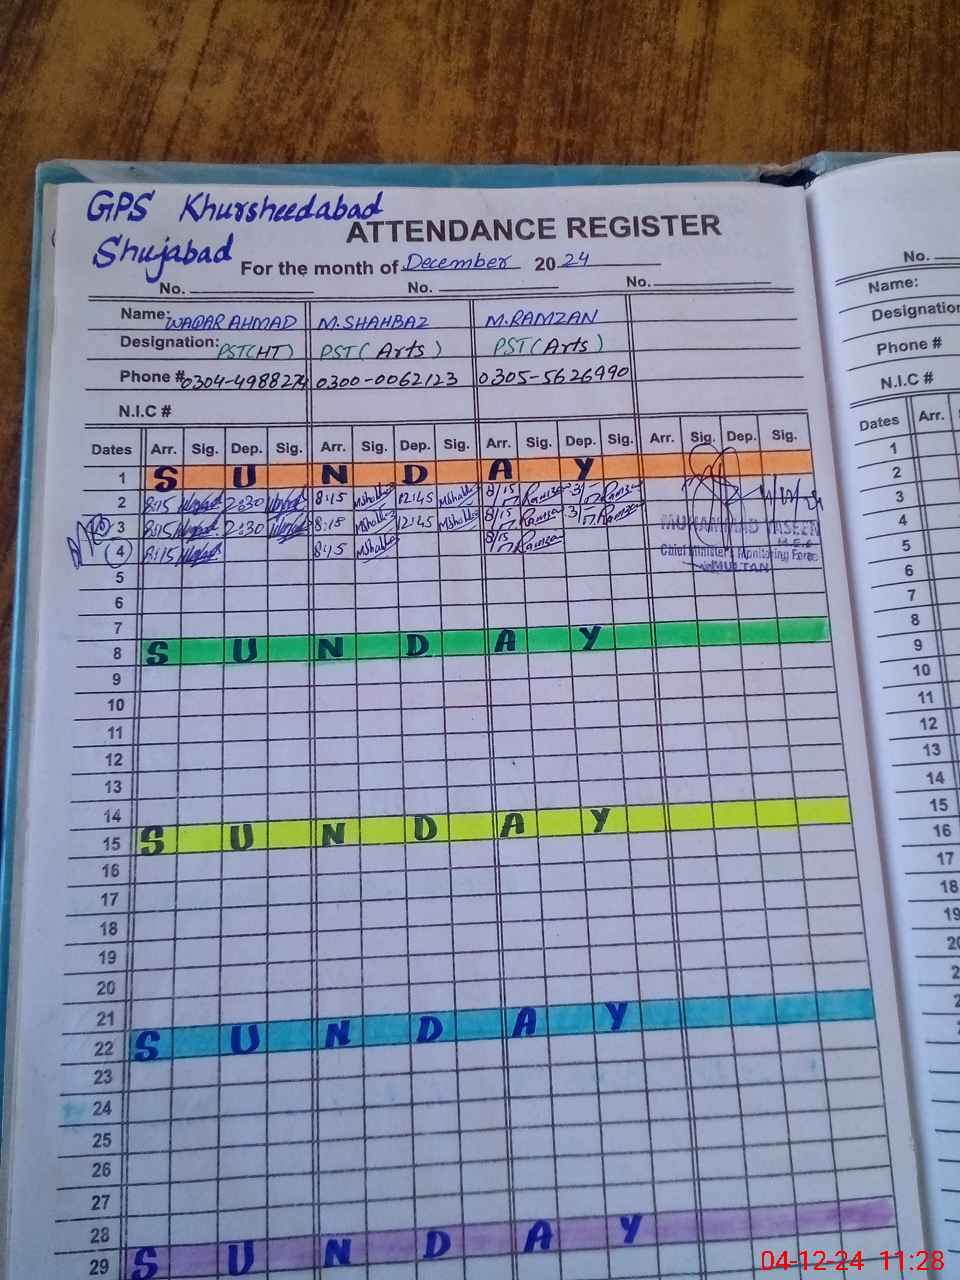 GPS Khursheedabad
ATTENDANCE REGISTER
Shujabad
For the month of December 2024
No. No. No.
Name: WAQAR AHMAD M.SHAHBAZ M.RAMZAN
Designation: PST(HT) PST(Arts) PST(Arts)
Phone # 0304-4988274 0300-0062123 0305-5626990
N.I.C #
Dates Arr. Sig. Dep. Sig. Arr. Sig. Dep. Sig. Arr. Sig. Dep. Sig. Arr. Sig. Dep. Sig.
1 S U N D A Y
2 8:15 2:30 8:15 MShahbaz 12:45 MShahbaz 8/15 Ramzan 3/ Ramzan
3 8:15 2:30 8:15 MShahbaz 12:45 MShahbaz 8/15 Ramzan 3/ Ramzan
4 8:15 8:15 MShahbaz 8/15 Ramzan
MUHAMMAD YASEEN
M.E.A
Chief Minister's Monitoring Force
MULTAN
5
6
7
8 S U N D A Y
9
10
11
12
13
14
15 S U N D A Y
16
17
18
19
20
21
22 S U N D A Y
23
24
25
26
27
28
29 S U N D A Y
No.
Name:
Designation
Phone #
N.I.C #
Dates Arr.
1
2
3
4
5
6
7
8
9
10
11
12
13
14
15
16
17
18
19
04-12-24 11:28